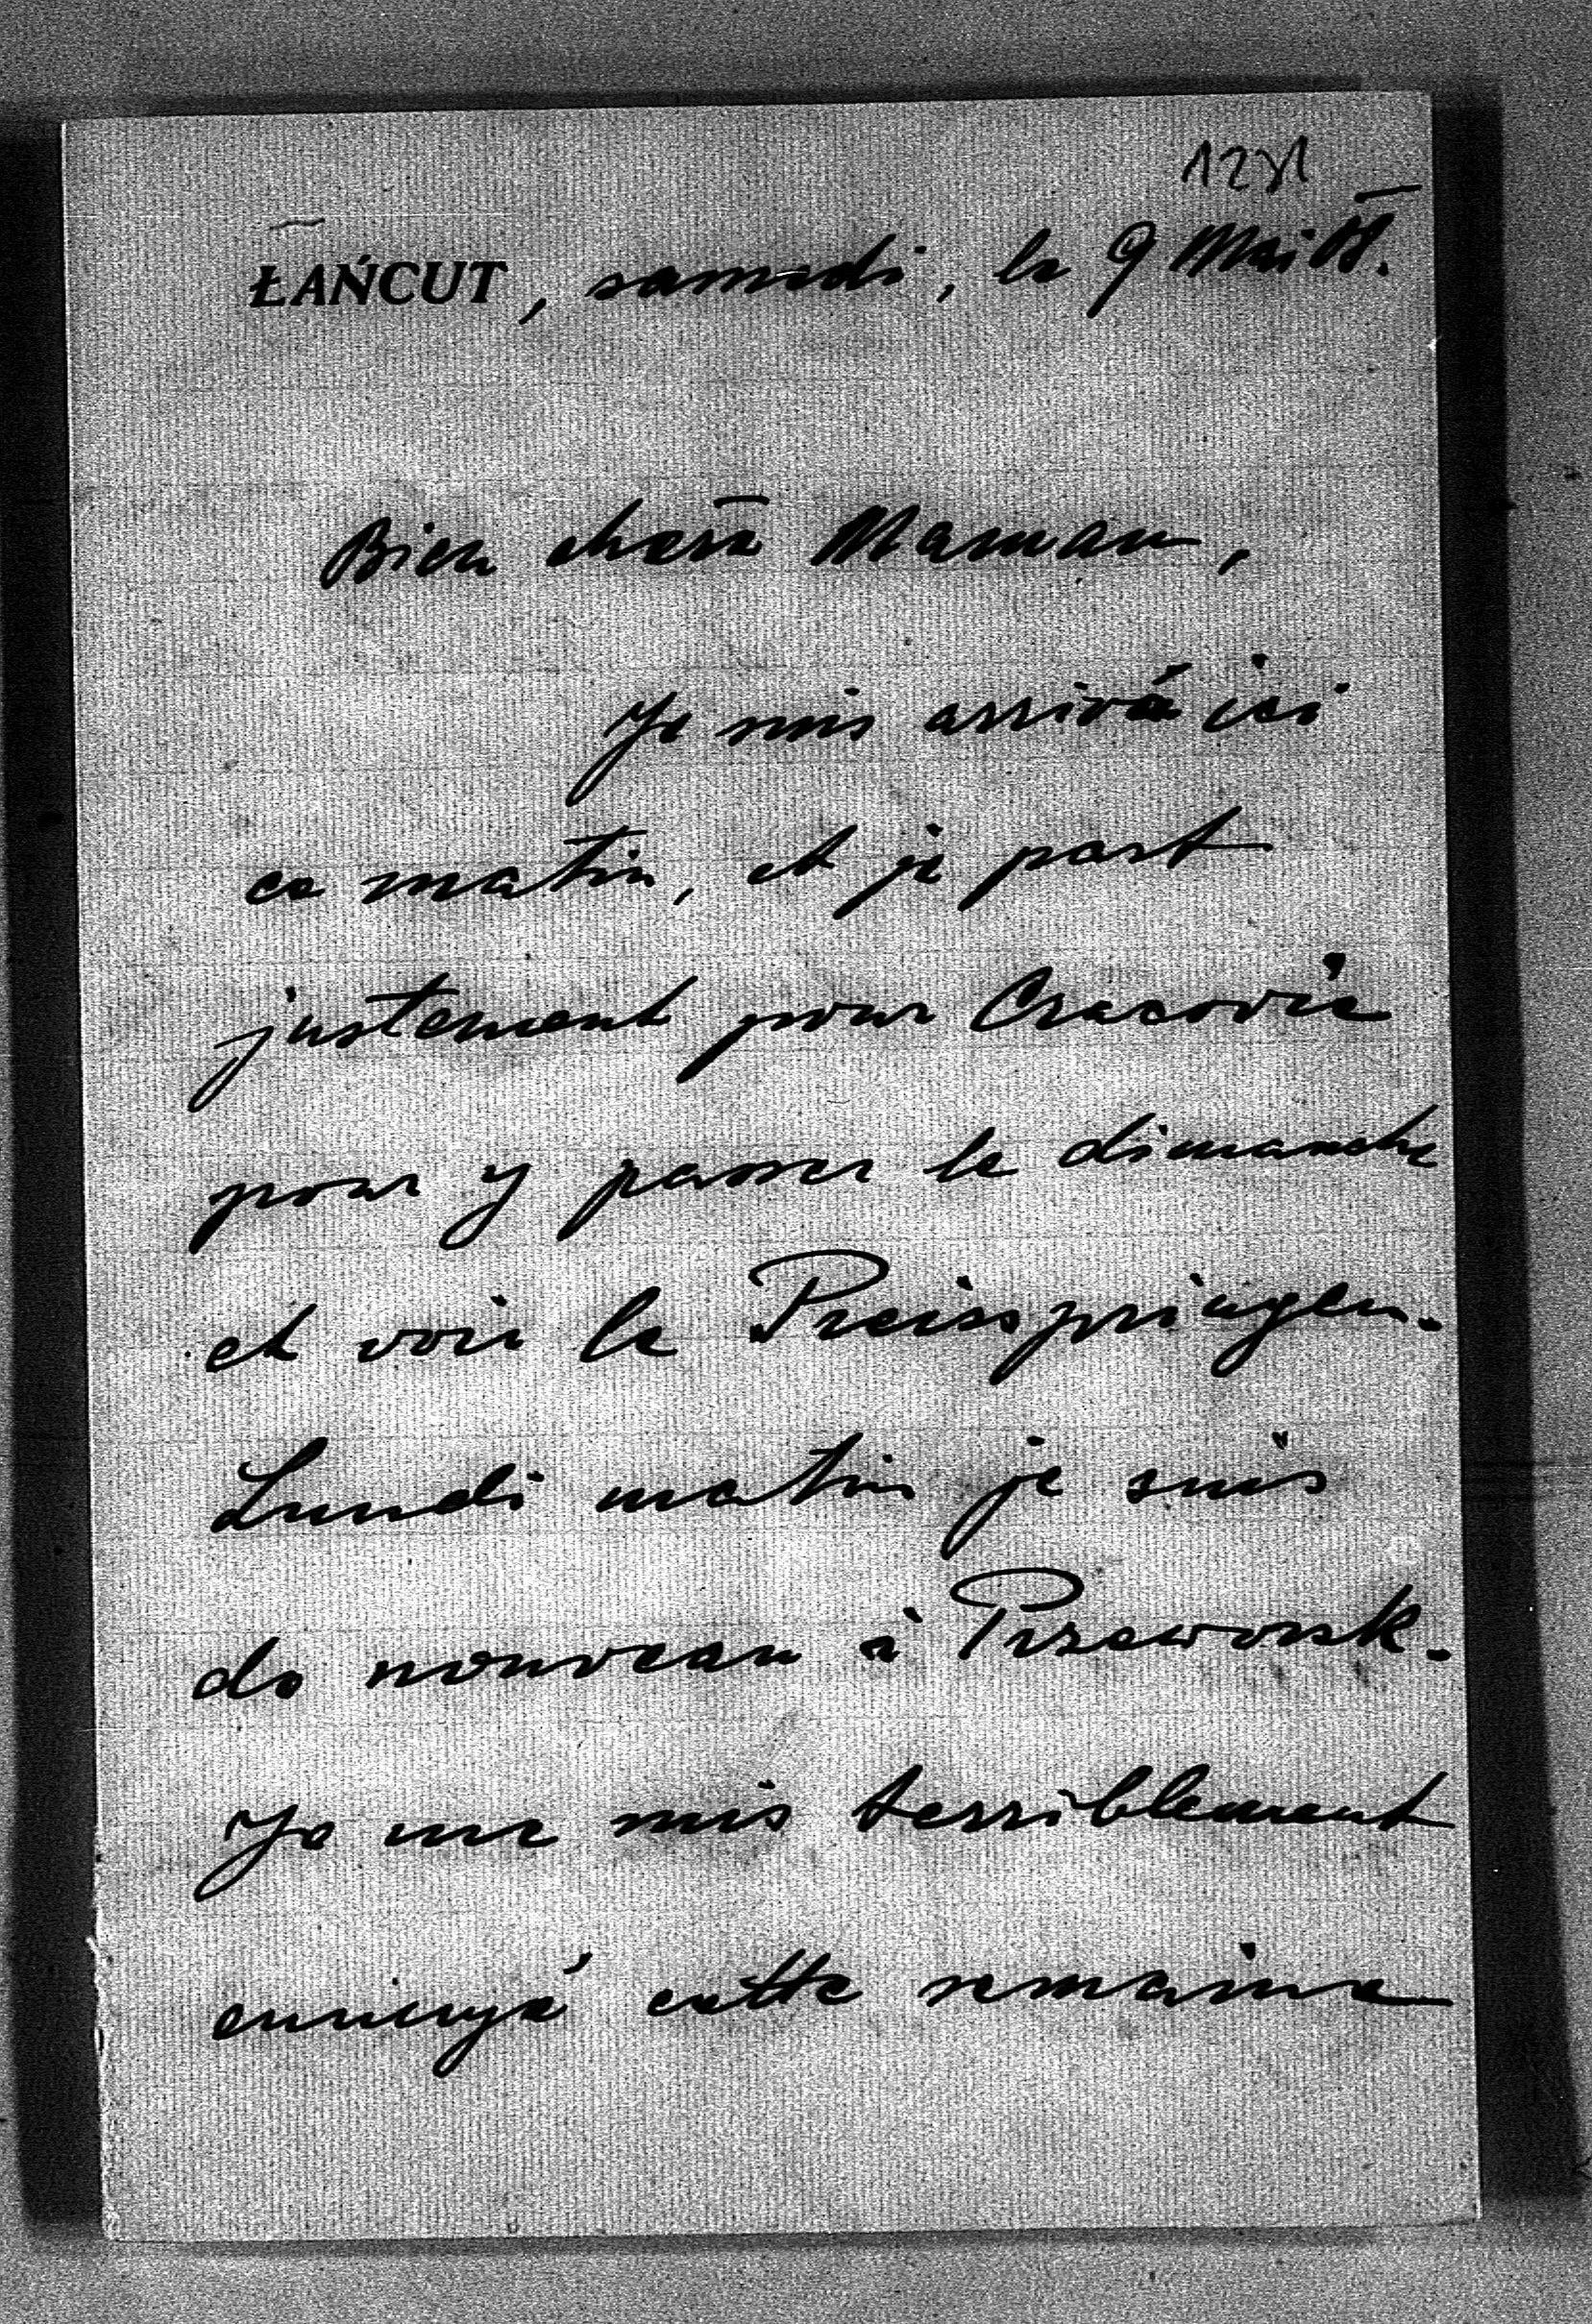 1281
ŁAŃCUT, samedi, le 9 Mai
Bien chère Maman,
Je suis arrivé ici
ce matin, et je part
justement pour Cracovie
pour y passer le dimanche
et voir le Preisspringen.
Lundi matin je suis
de nouveau à Przeworsk.
Je me suis terriblement
ennuyé cette semaine